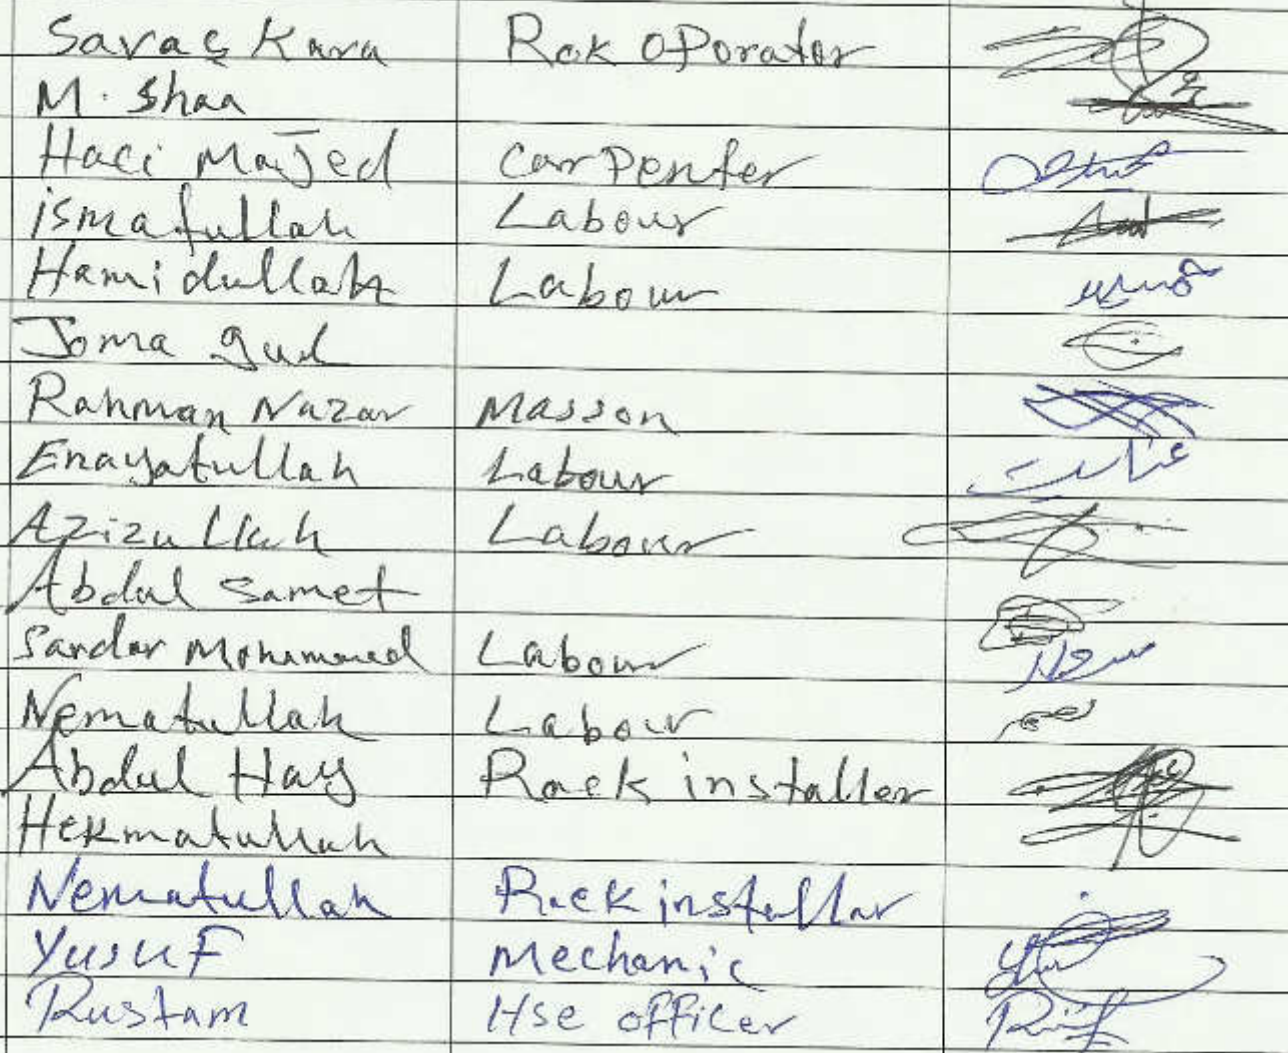 Savaş Kara Rok oporator
M. Shaa
Haci Majed Carpenter
ismatullah Labour
Hamidullah Labour
Joma gul
Rahman Nazar Masson
Enayatullah Labour
Azizullah Labour
Abdul Samet
Sardar Mohammed Labour
Nematullah Labour
Abdul Hay Rack installer
Hekmatullah
Nematullah Rack installar
Yusuf Mechanic
Rustam Hse officer